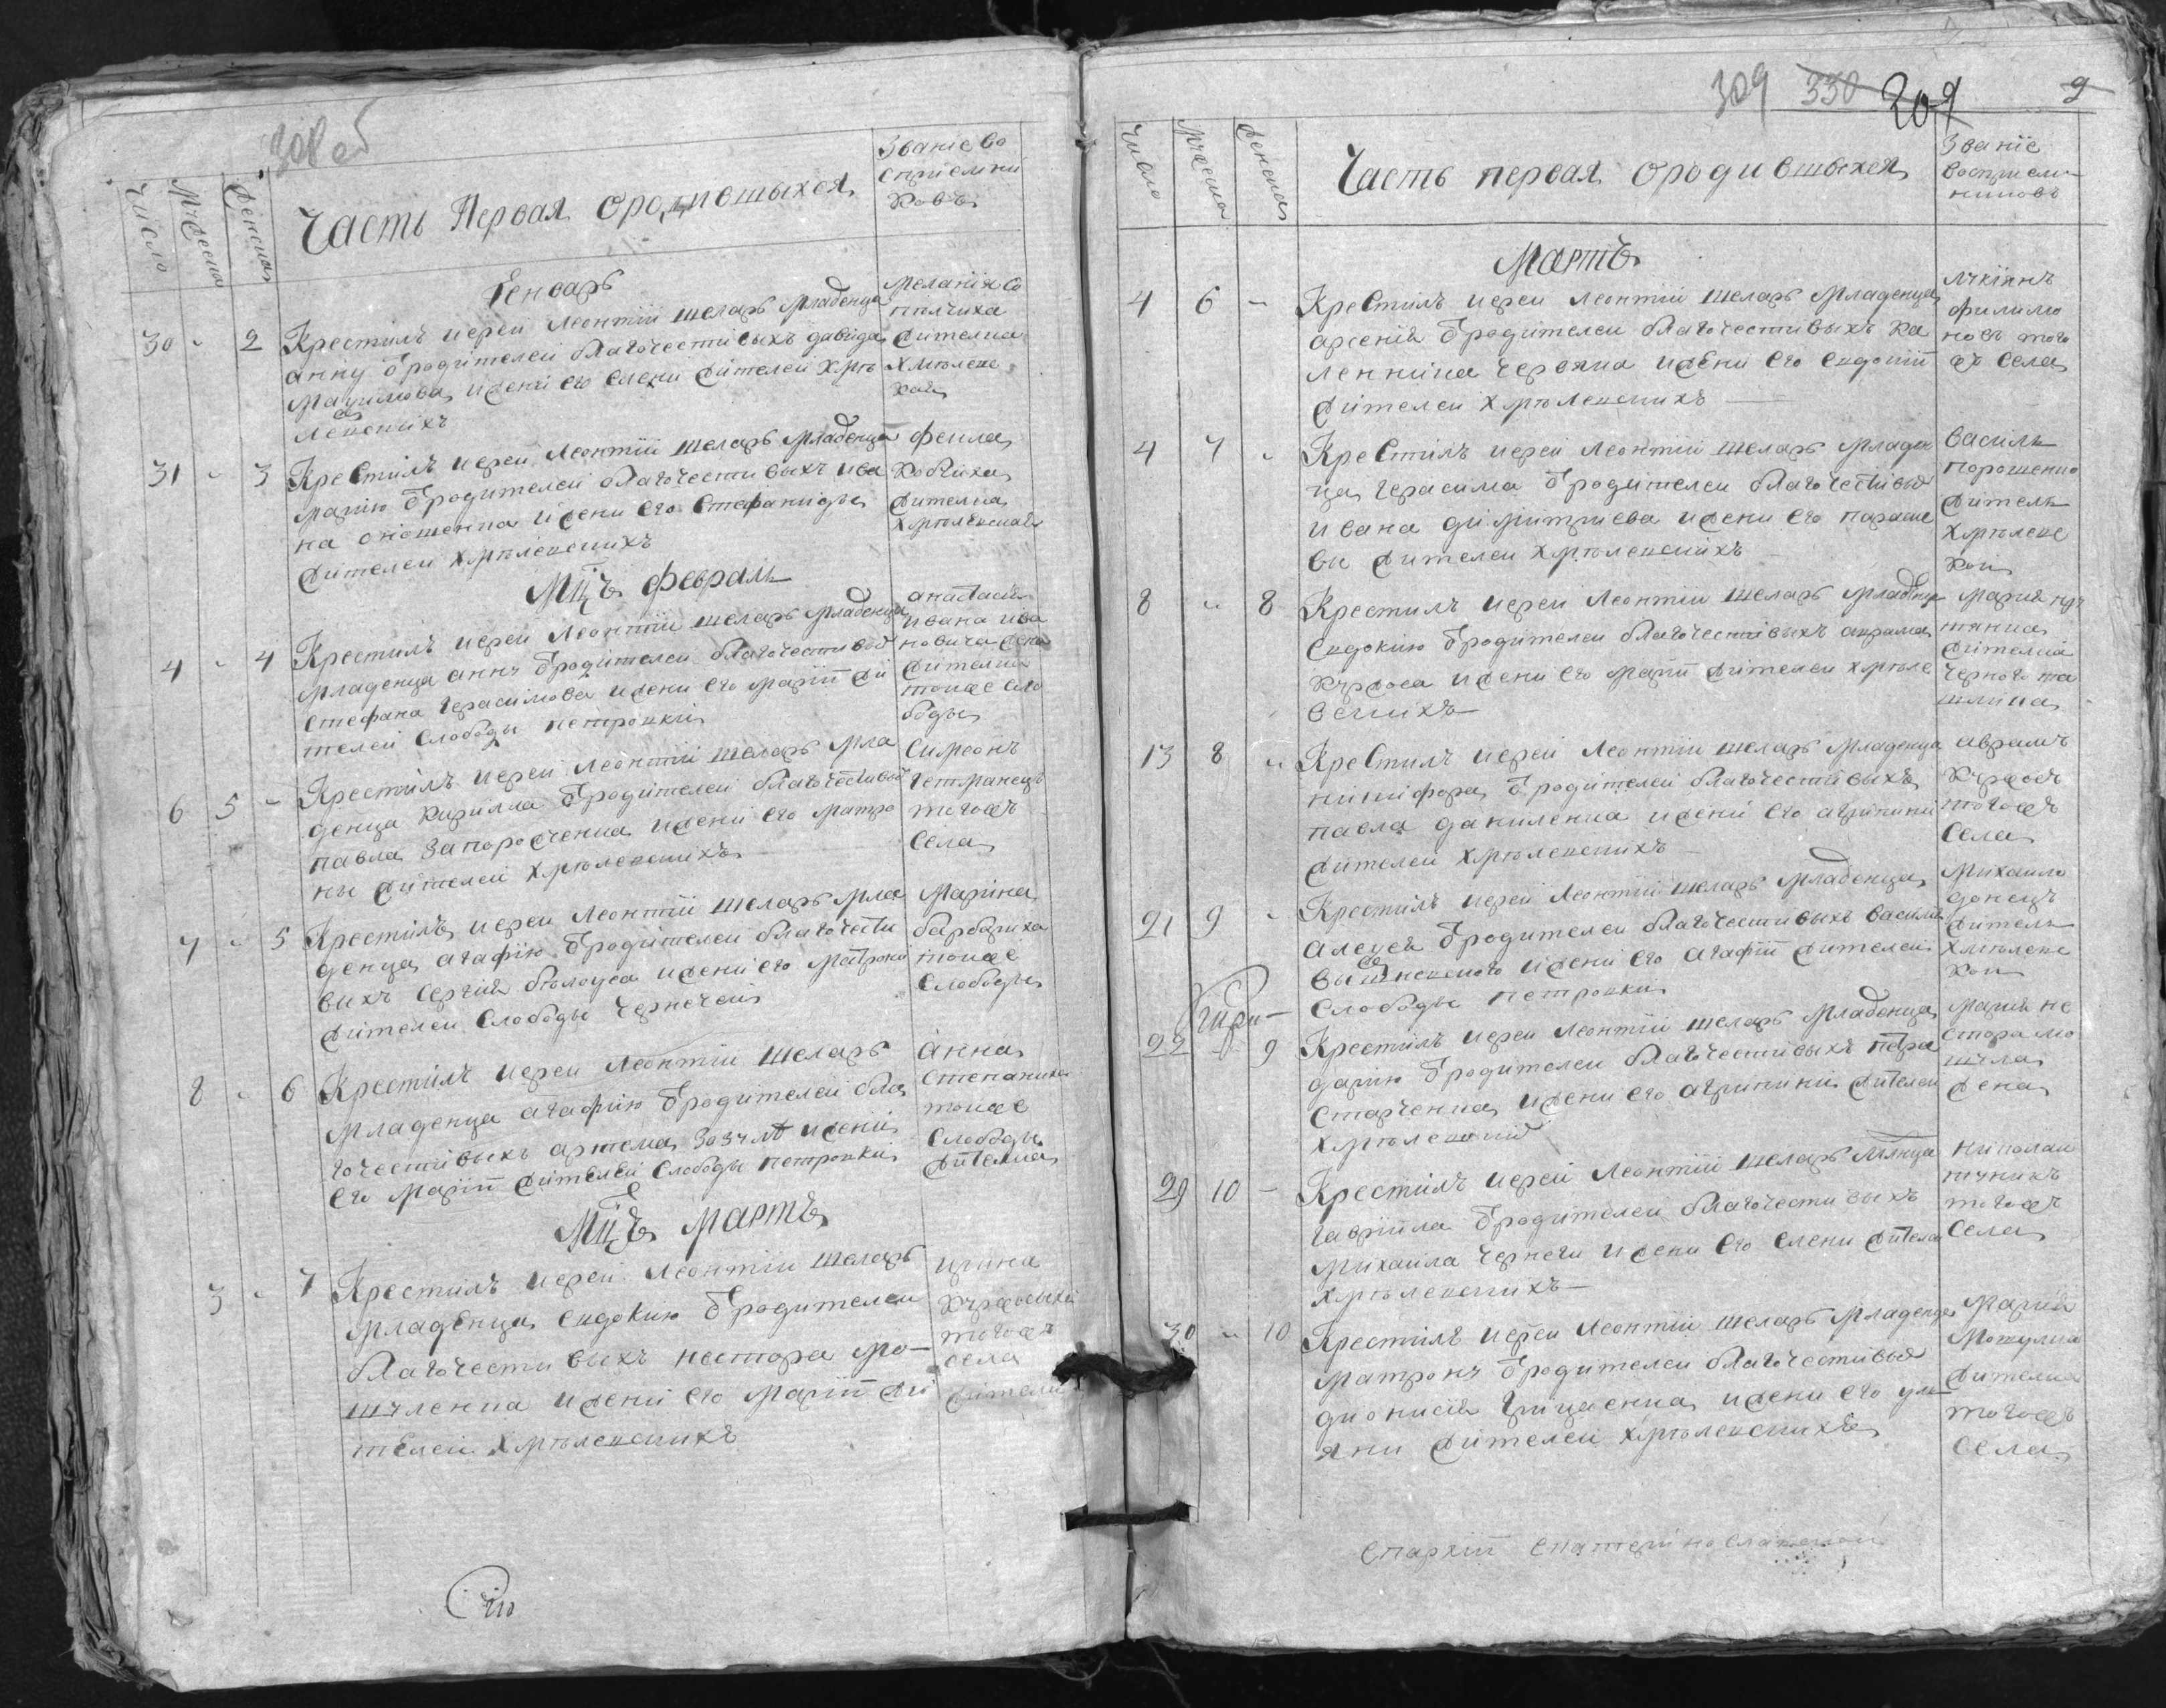 308 об
Число
Мужеска
Женска
Часть Первая ородившыхся
Званіе во
спріемни
ковъ
Генварь
30 - 2
Крестилъ иерей Леонтій шеларь младенца
анну Ѿродителей благочестивыхъ давида
Мауимова, и жени его елени жителей Хмѣ
левскихъ
Меланія со
жителка
Хмѣлевс
кая
31 - 3
Крестилъ иерей Леонтій шеларь младенца
марию Ѿродителей благочестивыхъ ива
на онощенка и жени его Стефаниды
жителей хмѣлевскихъ
фекла
жителка
хмѣлевская
Мцъ февраль
4 - 4
Крестилъ иерей Леонтій шеларь младенца
младенца анну Ѿродителей благочестивых
Стефана Герасимова и жени его маріи жи
телей слободы петровки
анастасія
ивана ива
новича жена
жителка
тоиже сло
боды
6 5 -
Крестилъ иерей Леонтій шеларь мла
денца кирилла Ѿродителей благочестивых
павла Запорожченка и жени его матро
ны жителей хмѣлевскихъ
Симеонъ
гетманецъ
тогожъ
села
7 - 5
Крестилъ иерей Леонтій шеларь мла
денца агафію Ѿродителей благочести
выхъ сергія бѣлоуса и жени его матрони
жителей слободы чернечей
Марина
барбариха
тоиже
слободы
8 - 6
Крестилъ иерей Леонтій шеларь
младенца агафию Ѿродителей бла
гочестивыхъ артема Зозулѣ и жени
его маріи жителей слободы петровки
анна
степаниха
тоиже
слободы
жителка
Мцъ Мартъ
3 - 7
Крестилъ иерей Леонтій шеларь
младенца евдокию Ѿродителей
благочестивыхъ нестора мо-
шуленка и жени его маріи жи
телей хмѣлевскихъ
ирина
тогожъ
села
жителка
309 330 209 9
Число
Мужеска
Женска
Часть первая ородившыхся
Званіе
восприем-
никовъ
Мартъ
4 6 -
Крестилъ иерей Леонтій шеларь младенца
арсенія Ѿродителей благочестивыхъ ка
ленника червяка и жени его евдокіи
жителей хмѣлевскихъ
лукіянъ
филимо
новъ того
жъ села
4 7 -
Крестилъ иерей Леонтій шеларь младен
ца герасима Ѿродителей благочестивых
ивана димитриева и жени его параске
вы жителей хмѣлевскихъ
василь
порошенко
житель
хмѣлевс
кой
8 - 8
Крестилъ иерей Леонтій шеларь младенца
евдокию Ѿродителей благочестивыхъ аврама
и жени его маріи жителей хмѣле
вскихъ
мария
жителка
черного та
шлика
13 8 -
Крестилъ иерей Леонтій шеларь младенца
никифора Ѿродителей благочестивыхъ
павла даниленка и жени его агрипини
жителей хмѣлевскихъ
аврамъ
тогожъ
села
21 9 -
Крестилъ иерей Леонтій шеларь младенца
алексея Ѿродителей благочестивыхъ василія
вышневского и жени его агафіи жителей
слободы петровки
Михаило
донецъ
житель
хмѣлевс
кои
22 - 9
Крестилъ иерей Леонтій шеларь младенца
дарию Ѿродителей благочестивыхъ петра
старченка и жени его агрипини жителей
хмѣлевских
мария не
стора мо
шула
жена
29 10 -
Крестилъ иерей Леонтій шеларь млнца
гавріила Ѿродителей благочестивыхъ
михаила чернеги и жени его елени жителей
хмѣлевскихъ
николаи
тогожъ
села
30 - 10
Крестилъ иерей Леонтій шеларь младенца
матрону Ѿродителей благочестивых
дионисия грицаенка и жени его улья
яни жителей хмѣлевскихъ
мария
жителка
тогожъ
села
епархіи екатеринославской